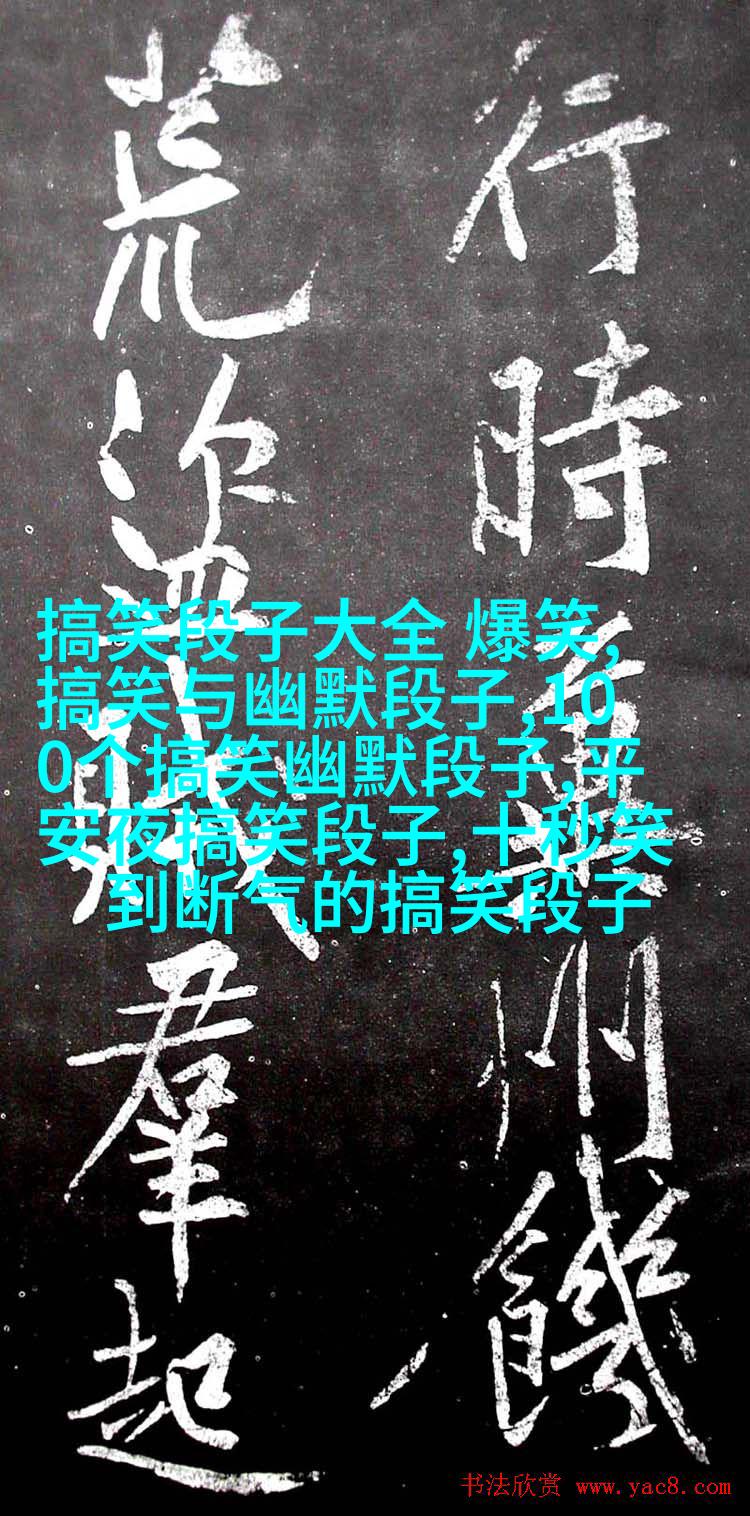 行時州饑
荒盜賊羣起
搞笑段子大全 爆笑,
搞笑与幽默段子,10
0个搞笑幽默段子,平
安夜搞笑段子,十秒笑
到断气的搞笑段子
书法欣赏 www.yac8.com